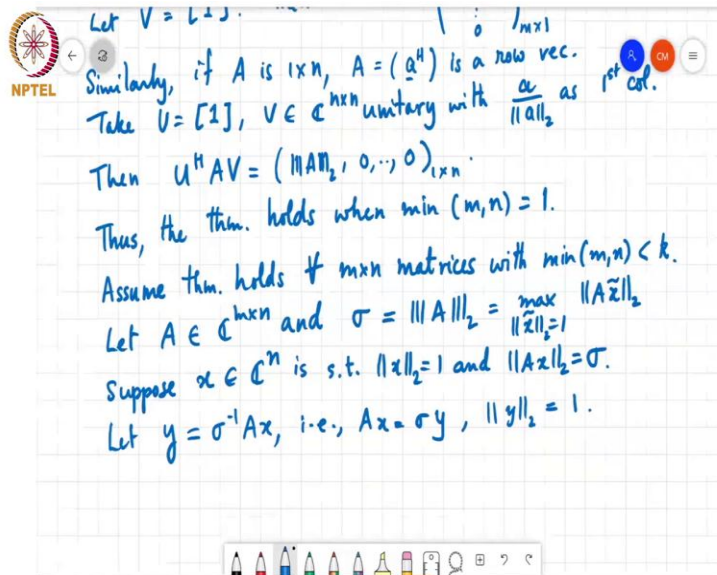 Let V = [1].
( ⋮ 0 )m×1
NPTEL
A
CM
Similarly, if A is 1×n, A = (a^H) is a row vec.
Take U = [1], V ∈ ℂ^{n×n} unitary with a/||a||₂ as 1st col.
Then U^H AV = (|||A|||₂, 0, .., 0)₁ₓₙ.
Thus, the thm. holds when min (m,n) = 1.
Assume thm. holds ∀ m×n matrices with min(m,n) < k.
Let A ∈ ℂ^{m×n} and σ = |||A|||₂ = max_{||x̃||₂=1} ||Ax̃||₂
Suppose x ∈ ℂⁿ is s.t. ||x||₂=1 and ||Ax||₂=σ.
Let y = σ⁻¹Ax, i.e., Ax = σy, ||y||₂ = 1.